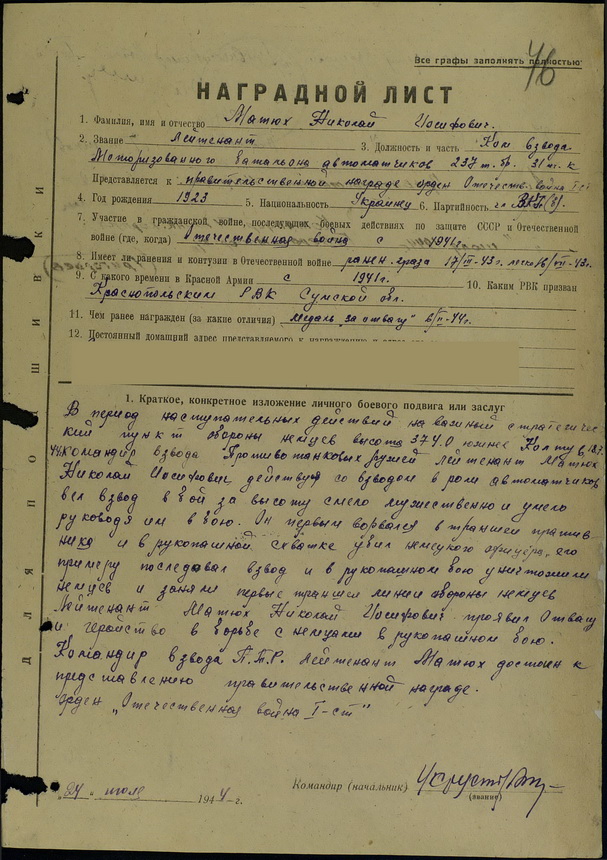 Все графы заполнять полностью
46
НАГРАДНОЙ ЛИСТ
1. Фамилия, имя и отчество Матюх Николай Иосифович.
2. Звание Лейтенант 3. Должность и часть Ком взвода
Моторизованного батальона автоматчиков 237 т. бр. 31 т. к
Представляется к правительственной награде орден Отечеств. война I ст
4. Год рождения 1923 5. Национальность Украинец 6. Партийность ВКП(б).
7. Участие в гражданской войне, последующих боевых действиях по защите СССР и Отечественной
войне (где, когда) Отечественная война с 1941г.
8. Имеет ли ранения и контузии в Отечественной войне ранен 17/III-43г. легко 16/VII-43г.
9. С какого времени в Красной Армии с 1941г. 10. Каким РВК призван
Краснопольским РВК Сумской обл.
11. Чем ранее награжден (за какие отличия) медаль "за отвагу" 6/II-44г.
12. Постоянный домашний адрес представляемого к награждению
1. Краткое, конкретное изложение личного боевого подвига или заслуг
В период наступательных действий на важный стратегичес
кий пункт обороны немцев высота 374.0 южнее Колтув
командир взвода Противотанковых ружей Лейтенант Матюх
Николай Иосифович действуя со взводом в роли автоматчиков
вел взвод в бой за высоту смело мужественно и умело
руководя им в бою. Он первым ворвался в траншеи против
ника и в рукопашной схватке убил немецкого офицера, его
примеру последовал взвод и в рукопашном бою уничтожили
немцев и заняли первые траншеи линии обороны немцев
Лейтенант Матюх Николай Иосифович проявил Отвагу
и геройство в борьбе с немцами в рукопашном бою.
Командир взвода П.Т.Р. Лейтенант Матюх достоен к
представлению правительственной награде.
Орден „Отечественная война I-ст"
"24" июля 1944 г.
Командир (начальник)
(звание)
ДЛЯ ПОДШИВКИ